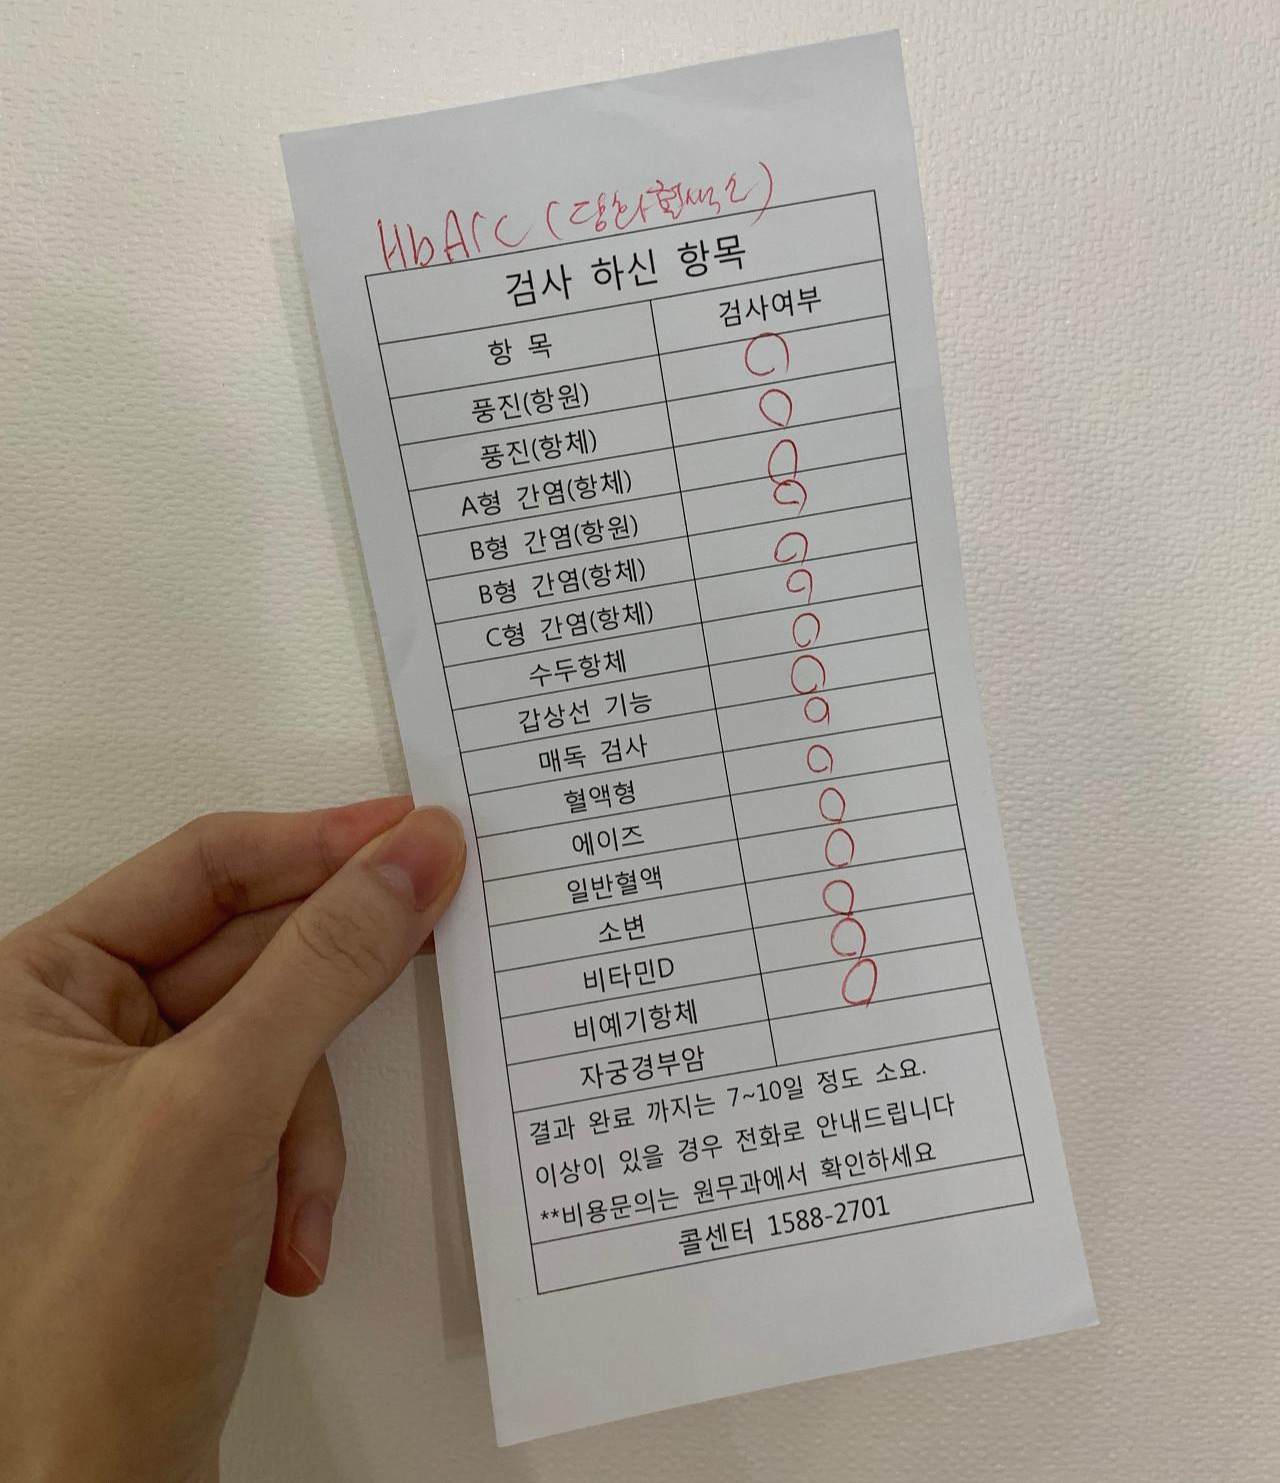 HbA1c (당화혈색소)
검사 하신 항목
항 목 검사여부
풍진(항원)
풍진(항체)
A형 간염(항체)
B형 간염(항원)
B형 간염(항체)
C형 간염(항체)
수두항체
갑상선 기능
매독 검사
혈액형
에이즈
일반혈액
소변
비타민D
비예기항체
자궁경부암
결과 완료 까지는 7~10일 정도 소요.
이상이 있을 경우 전화로 안내드립니다
**비용문의는 원무과에서 확인하세요
콜센터 1588-2701